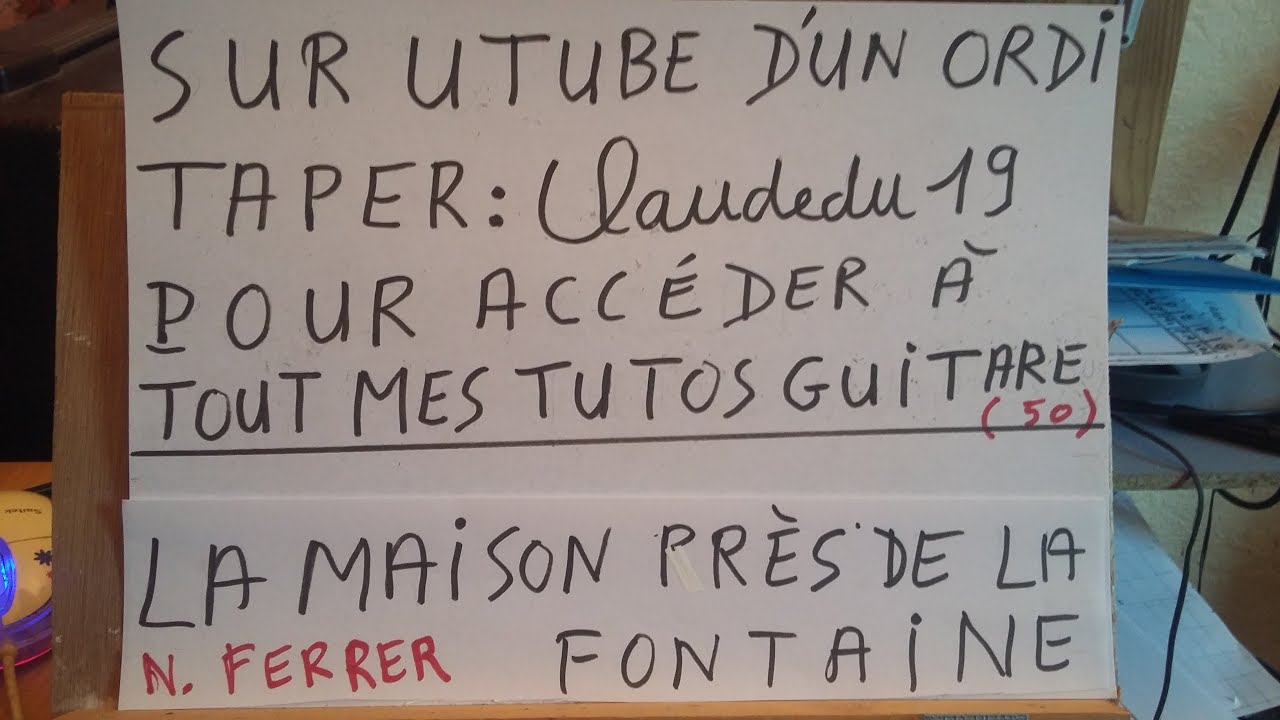 SUR UTUBE D'UN ORDI
TAPER: Claudedu 19
POUR ACCÉDER À
TOUT MES TUTOS GUITARE
(50)
LA MAISON PRÈS DE LA
N. FERRER FONTAINE